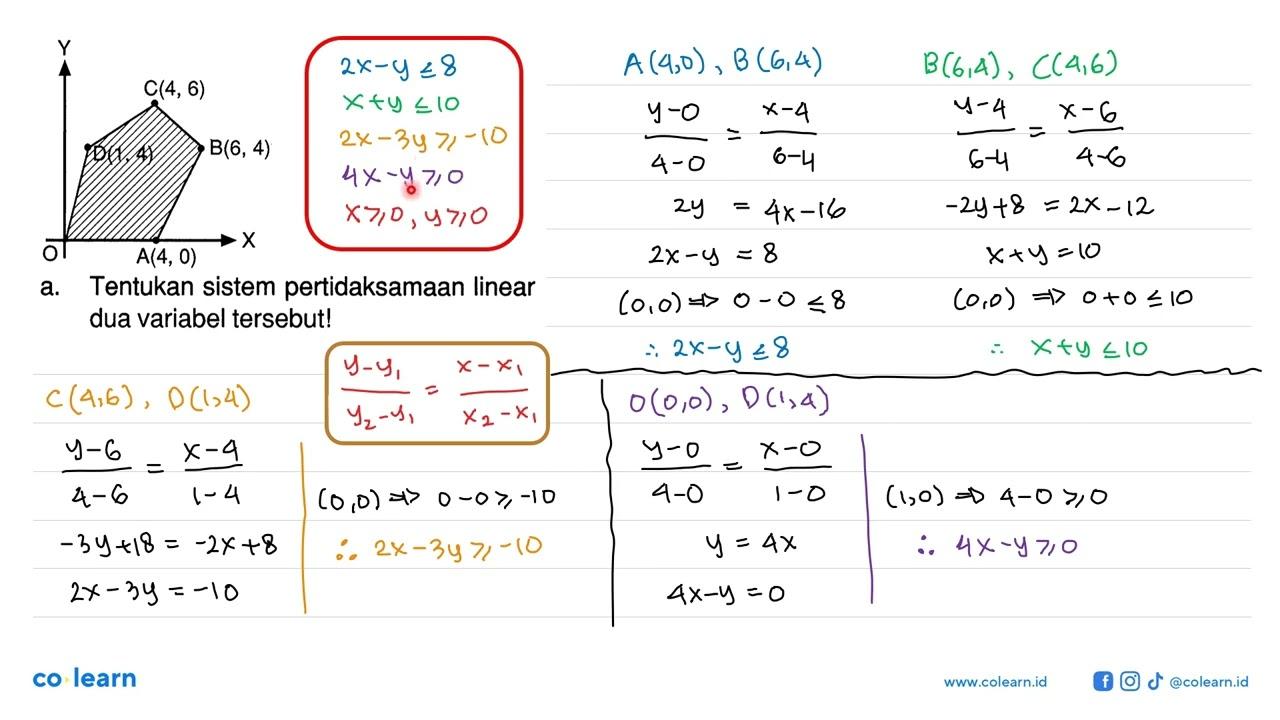 Y
C(4, 6)
D(1, 4)
B(6, 4)
O
A(4, 0)
X
a. Tentukan sistem pertidaksamaan linear
dua variabel tersebut!
2x-y ≤ 8
x+y ≤ 10
2x-3y ≥ -10
4x-y ≥ 0
x ≥ 0, y ≥ 0
A(4,0), B(6,4)
y-0/4-0 = x-4/6-4
2y = 4x-16
2x-y = 8
(0,0) ⇒ 0-0 ≤ 8
∴ 2x-y ≤ 8
B(6,4), C(4,6)
y-4/6-4 = x-6/4-6
-2y+8 = 2x-12
x+y = 10
(0,0) ⇒ 0+0 ≤ 10
∴ x+y ≤ 10
y-y₁/y₂-y₁ = x-x₁/x₂-x₁
C(4,6), D(1,4)
y-6/4-6 = x-4/1-4
-3y+18 = -2x+8
2x-3y = -10
(0,0) ⇒ 0-0 ≥ -10
∴ 2x-3y ≥ -10
O(0,0), D(1,4)
y-0/4-0 = x-0/1-0
y = 4x
4x-y = 0
(1,0) ⇒ 4-0 ≥ 0
∴ 4x-y ≥ 0
co·learn
www.colearn.id
@colearn.id